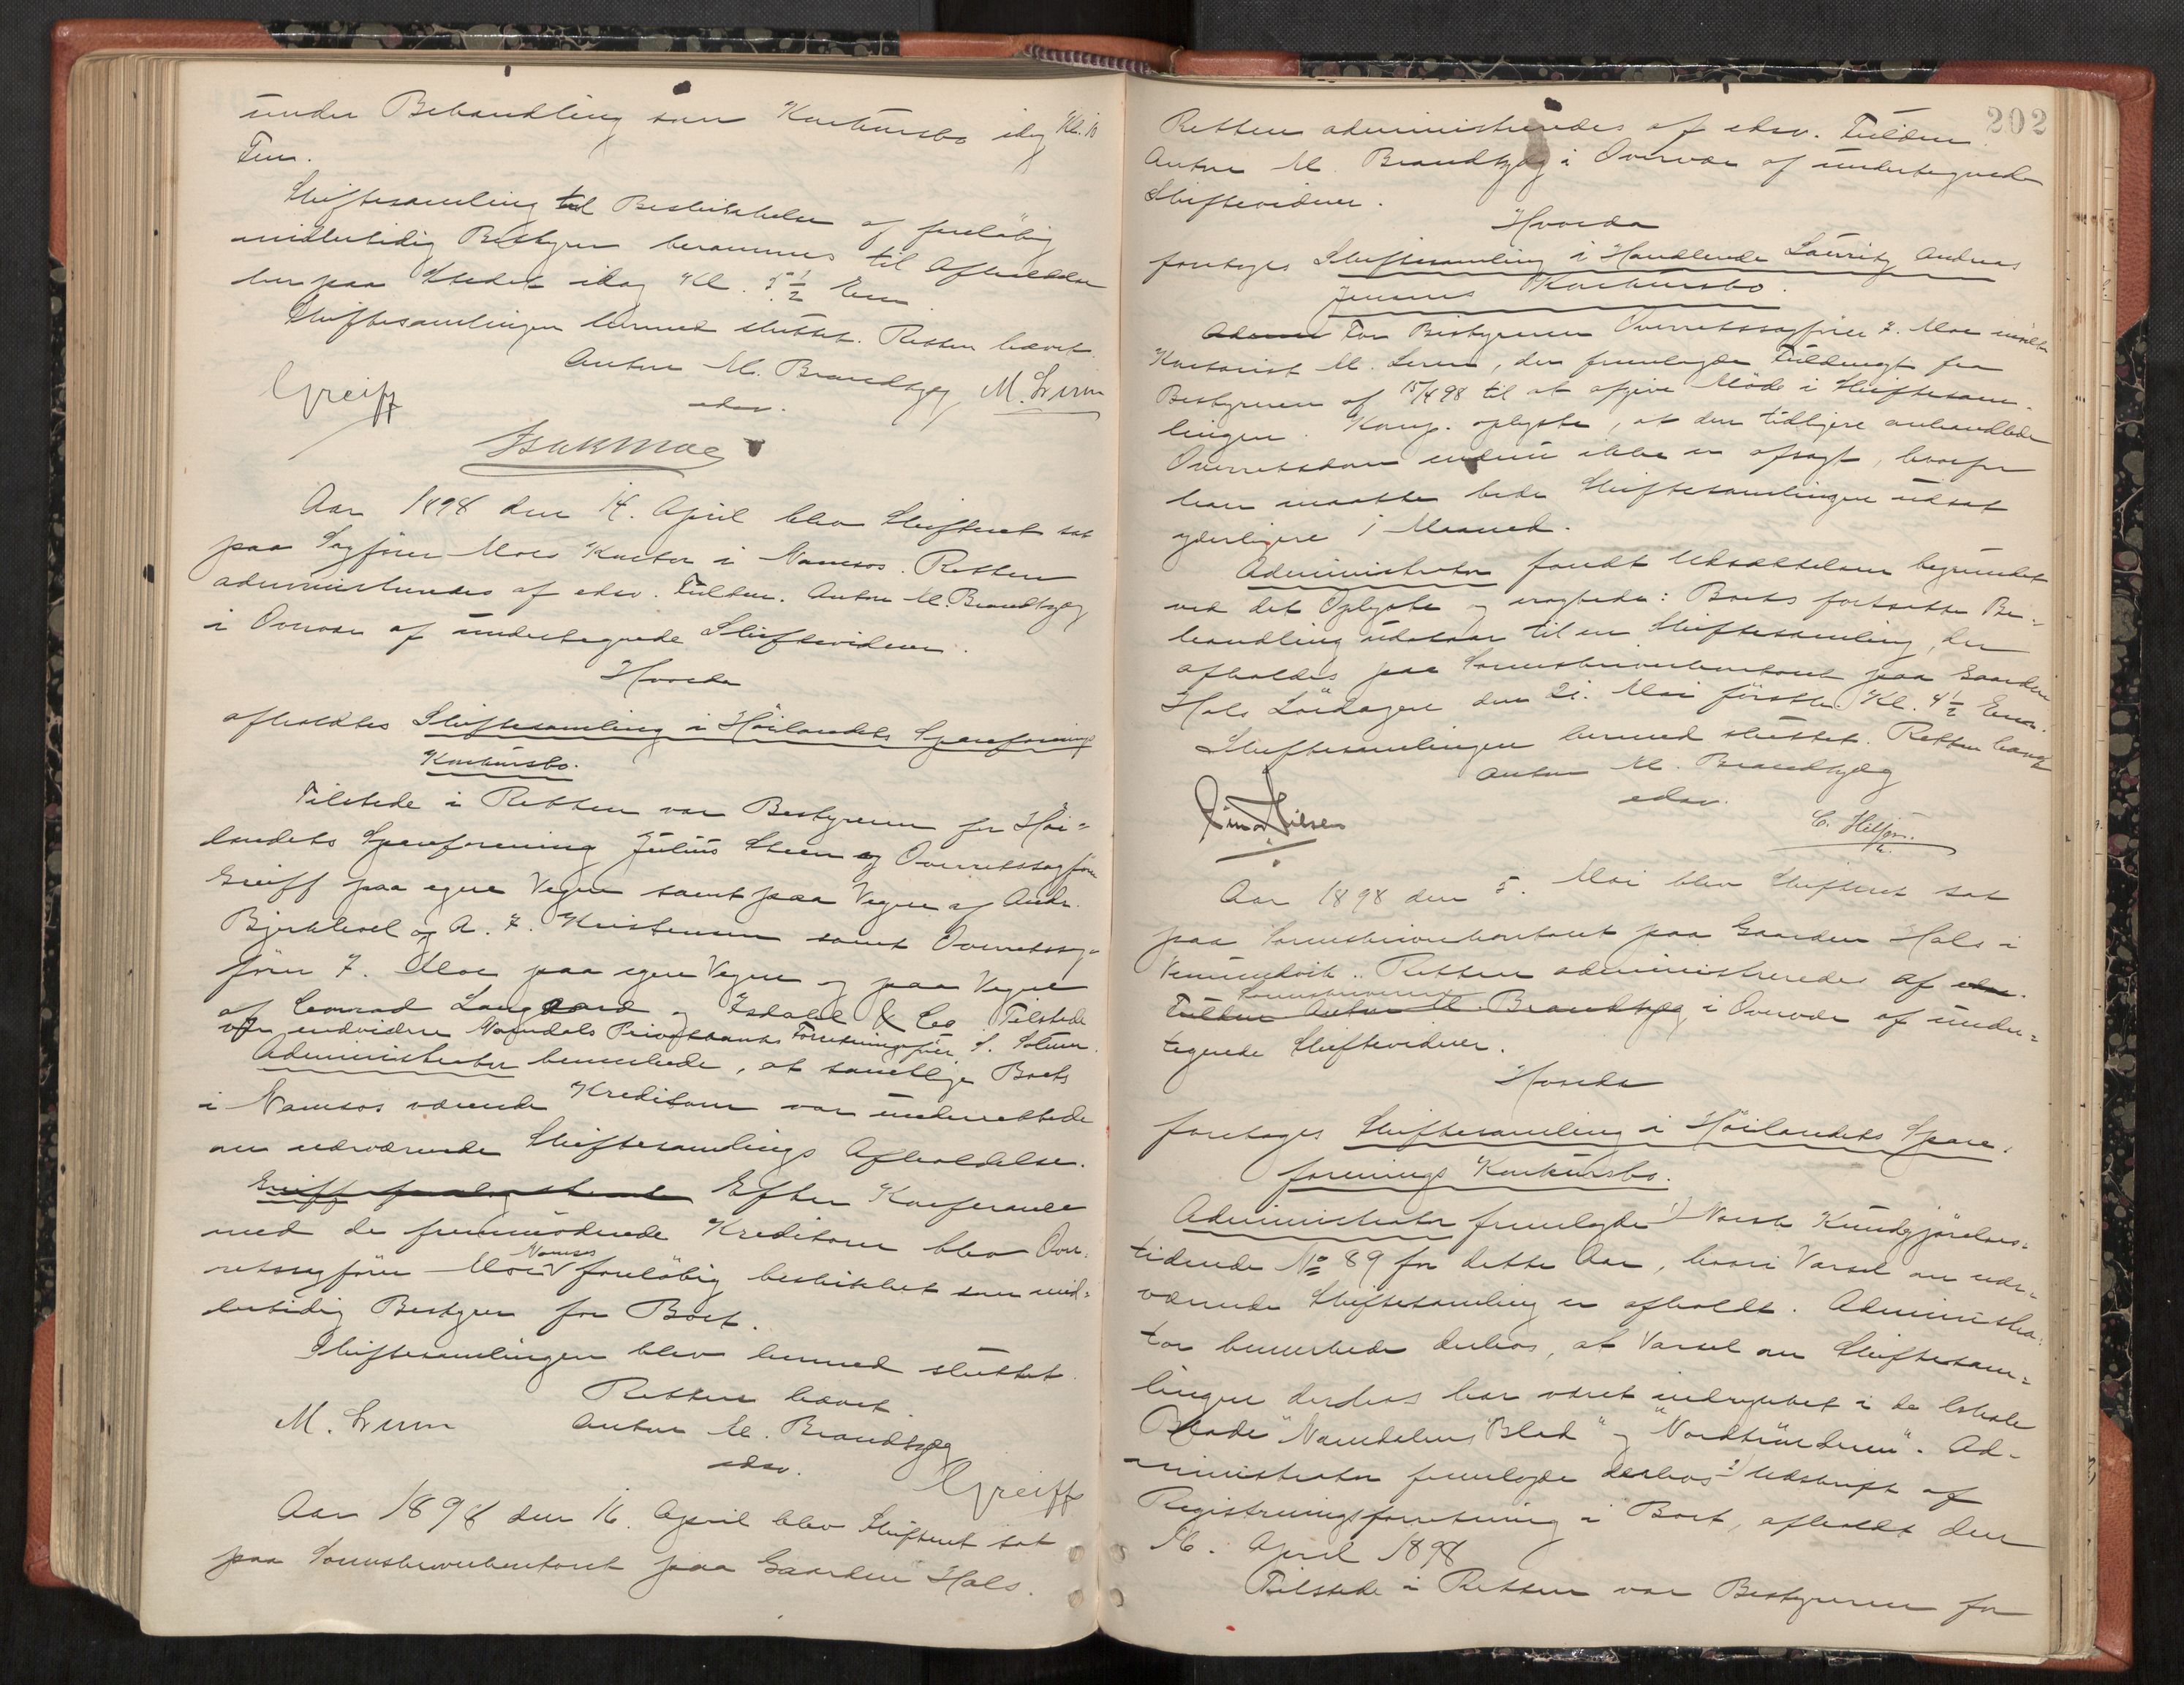 under Behandling som Konkursbo idag Kl. 10
Fm.
Skiftesamling til Beskikkelse af foreløbig
midlertidig Bestyrer berammes til Afholdelse
her paa Stedet idag Kl. 5 1/2 Em
Skiftesamlingen hermed sluttet. Retten hævet.
Anton M. Brandtzæg
edsv.
Greiff
M. Lrum
Isak Moe
Aar 1898 den 14. April blev Skifteret sat
paa Sagfører Moes Kontor i Namsos. Retten
administreredes af edsv. Fuldm. Anton M. Brandtzæg
i Overvær af undertegnede Skiftevidner.
Hvorda
afholdtes Skiftesamling i Høilandets Spareforenings
Konkursbo.
Tilstede i Retten var Bestyreren for Høi=
landets Spareforening Julius Skeen og Overretssagfører
Greiff paa egne Vegne samt paa Vegne af Andr.
og A. F. Kristensen samt Overretssag=
fører F. Moe paa egne Vegne og paa Vegne
af Conrad Langaard og Isdahl & Co. Tilstede
var endvidere Namdals Privatbanks Forretningsfører S.
Administrator bemærkede, at samtlige Boets
i Namsos værende Kreditorer var underrettede
om nærværende Skiftesamlings Afholdelse.
Greiff Efter Konferance
med de fremmødende Kreditorer blev Over=
retssagfører Moe Namsos foreløbig beskikket som mid=
lertidig Bestyrer for Boet.
Skiftesamlingen blev hermed sluttet.
Retten hævet.
M. Lrum
Anton M. Brandtzæg
edsv.
Greiff
Aar 1898 den 16. April blev Skifteret sat
paa Sorenskriverkontoret paa Gaarden Hals.
202
Retten administreredes af edsv. Fuldm.
Anton M. Brandtzæg i Overvær af undertegnede
Skiftevidner.
Hvorda
foretoges Skiftesamling i Handlende Lauritz Andreas
Jensens Konkursbo.
For Bestyreren Overretssagfører F. Moe mødte
Kontorist M. , der fremlagde Fuldmagt fra
Bestyreren af 15/4 98 til at afgive Møde i Skiftesam=
lingen. Komp. oplyste, at den tidligere omhandlede
Overretsdom endnu ikke er afsagt, hvorfor
han maatte bede Skiftesamlingen udsat
yderligere 1 Maaned.
Administrator fandt Udsættelsen begrundet
ved det Oplyste og eragtede: Boets fortsatte Be=
handling udstaar til en Skiftesamling, der
afholdes paa Sorenskriverkontoret paa Gaarden
Hals Lørdagen den 21. Mai førstk. Kl. 4 1/2 Em.
Skiftesamlingen hermed sluttet. Retten hævet
Anton M. Brandtzæg
edsv.
Nilsen
C.
Aar 1898 den 5. Mai blev Skifteret sat
paa Sorenskriverkontoret paa Gaarden Hals i
Vemundvik. Retten administreredes af edsv.
Sorenskriveren
Fuldm. Anton M. Brandtzæg i Overvær af under=
tegnede Skiftevidner.
Hvorda
foretoges Skiftesamling i Høilandets Spare=
forenings Konkursbo.
Administrator fremlagde 1) Norsk Kundgjørelses=
tidende No 89 for dette Aar, hvori Varsel om nær=
værende Skiftesamling er afholdt. Administra=
tor bemærkede derhos, at Varsel om Skiftesam=
lingen derhos har været indrykket i de lokale
Blade "Namdalens Blad" og "Nordtrønderen". Ad=
ministrator fremlagde derhos 2) Udskrift af
Registreringsforretning i Boet, afholdt den
16. April 1898
Tilstede i Retten var Bestyreren for